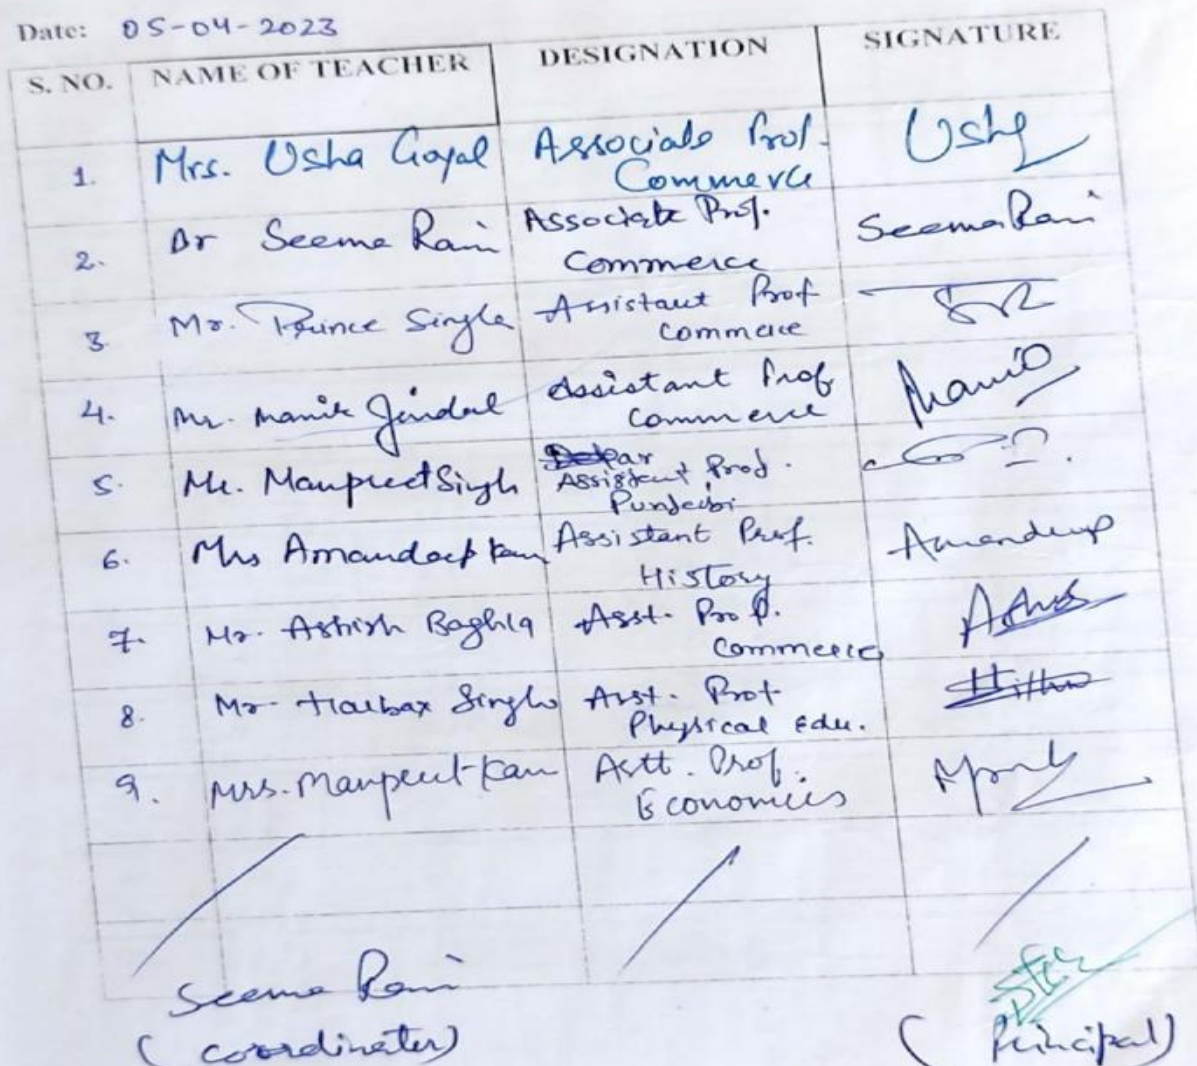 Date: 05-04-2023
S. NO. NAME OF TEACHER DESIGNATION SIGNATURE
1. Mrs. Usha Goyal Associate Prof. Usha
Commerce
2. Dr Seema Rani Associate Prof. Seema Rani
Commerce
3 Mr. Prince Singla Assistant Prof
Commerce
4. Mr. Manik Jindal Assistant Prof Manik
Commerce
5. Mr. Manpreet Singh Assistant Prof.
Punjabi
6. Mrs Amandeep Kaur Assistant Prof. Amandeep
History
7. Mr. Ashish Baghla Asst. Prof.
Commerce
8. Mr. Harbax Singh Asst. Prof
Physical Edu.
9. Mrs. Manpreet Kaur Astt. Prof.
Economics
Seema Rani
(coordinator) (Principal)